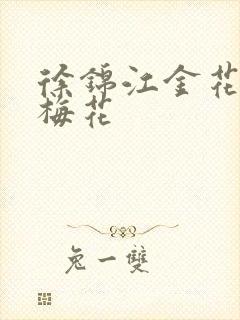 徐錦江金花
梅花
兔一雙